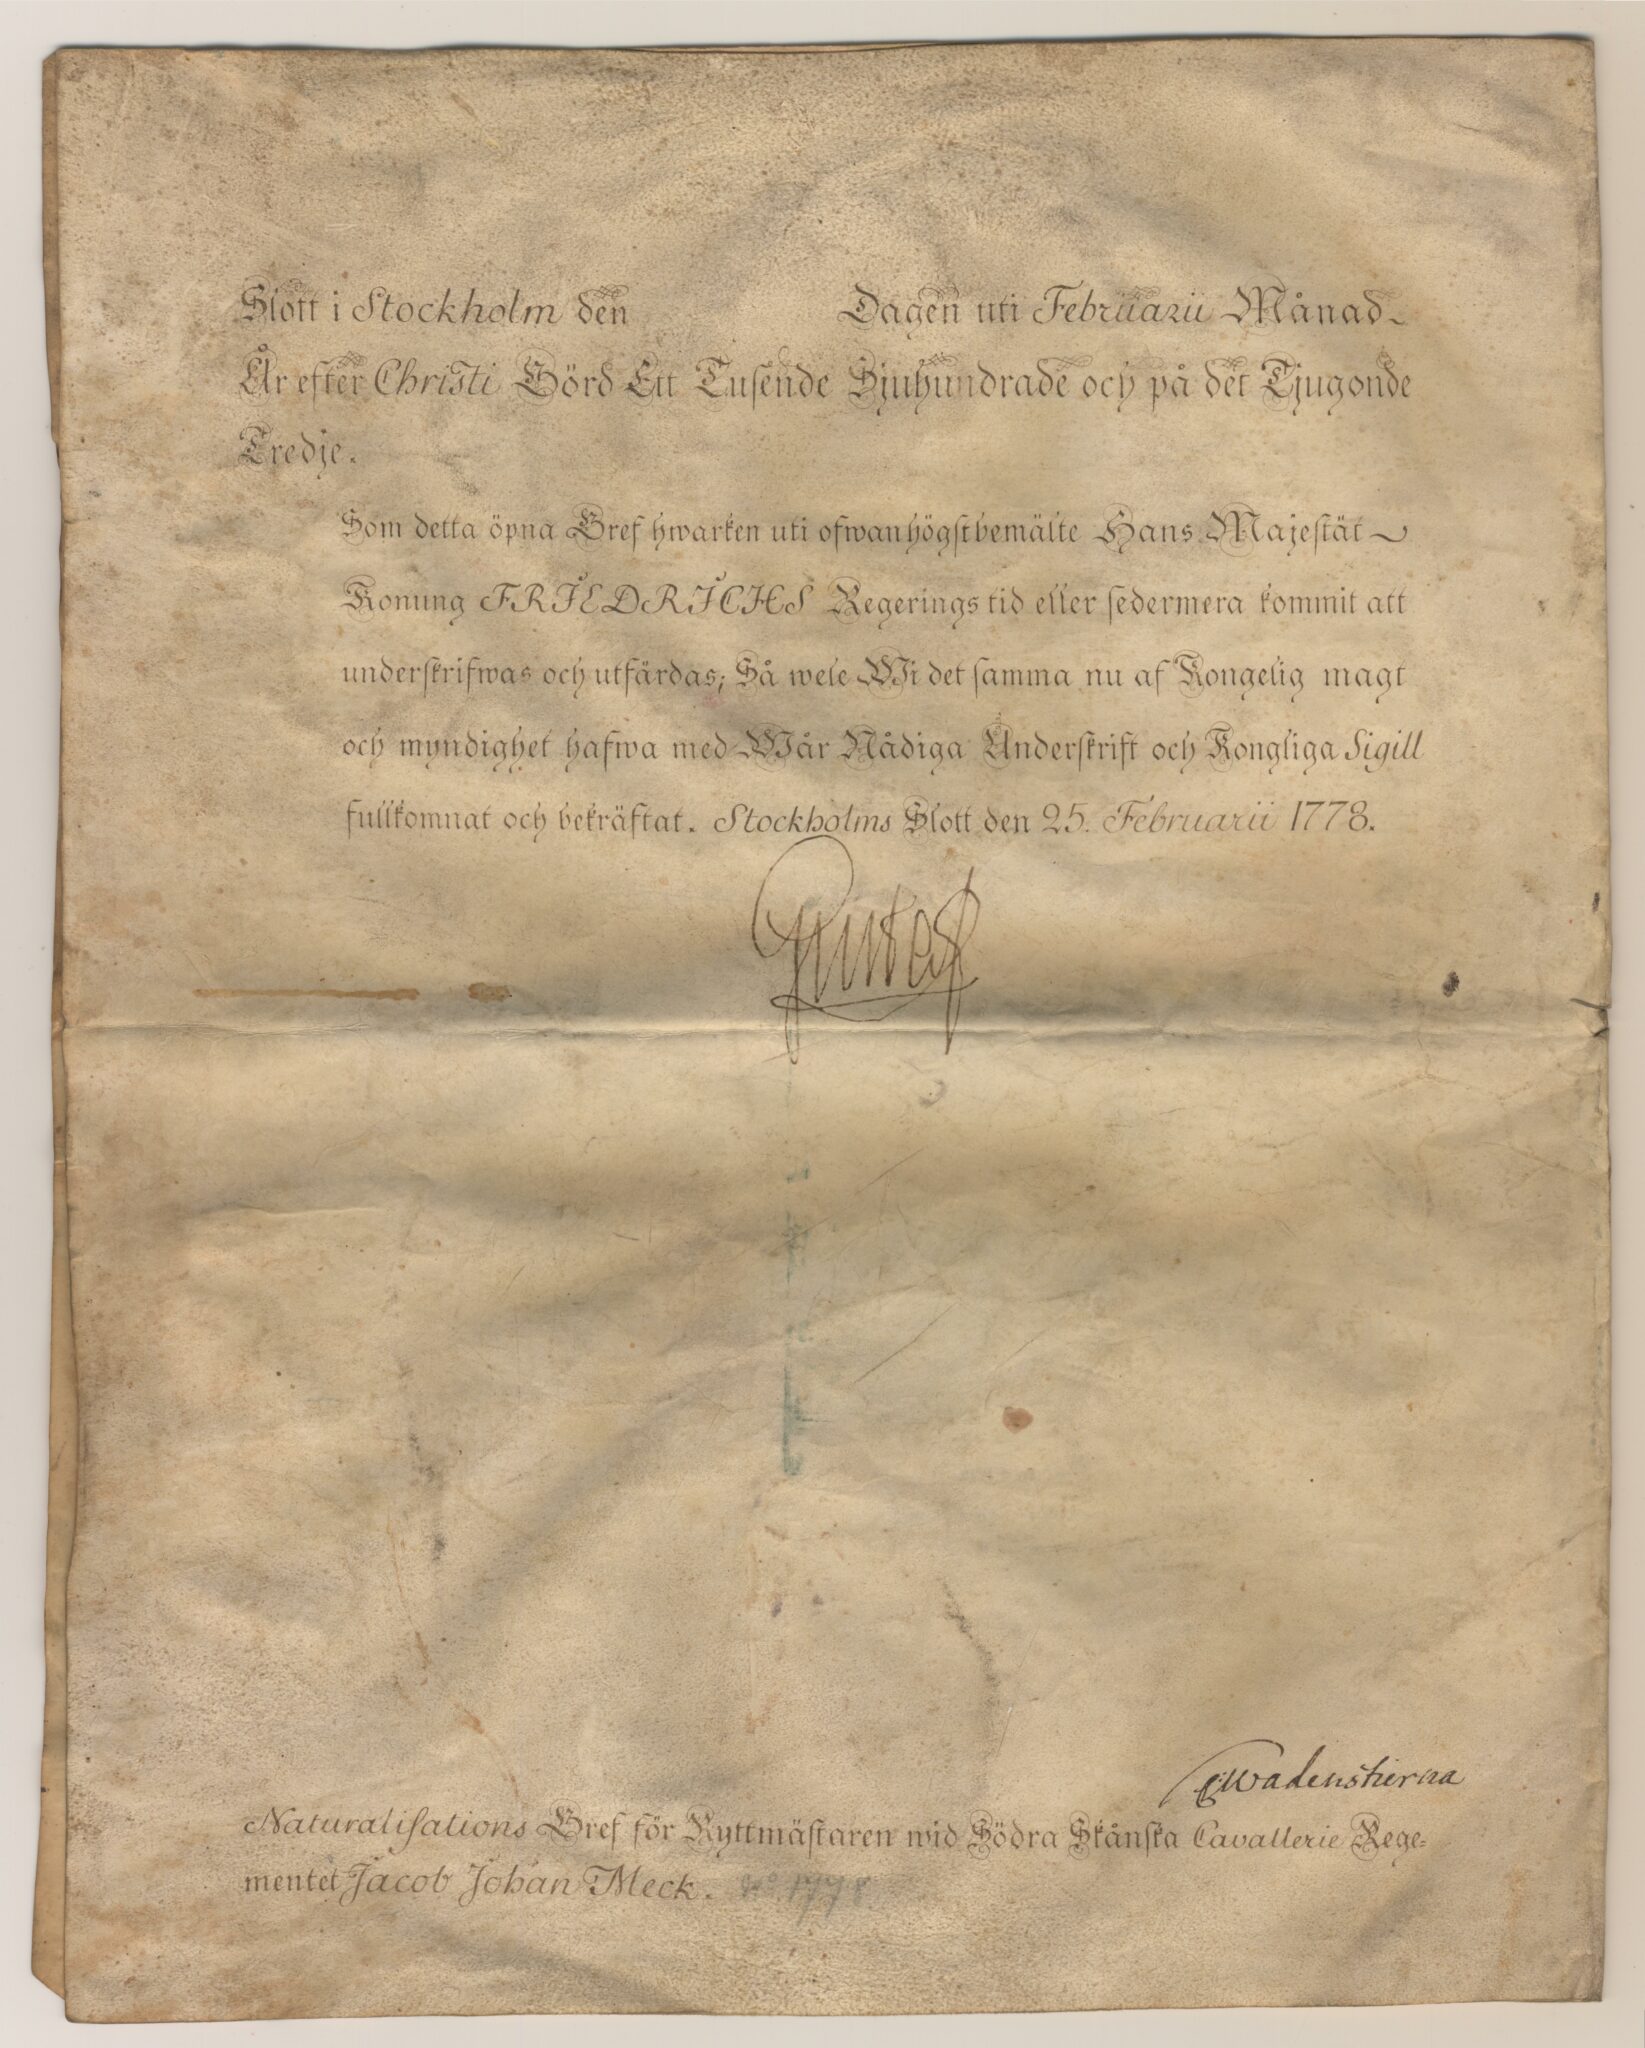 Slott i Stockholm den Dagen uti Februarii Månad
År efter Christi Börd Ett Tusende Sjuhundrade och på det Tjugonde
Tredje.
Som detta öpna Bref hwarken uti ofwanhögstbemälte Hans Majestät
Konung FRIEDRICHS Regerings tid eller sedermera kommit att
underskrifwas och utfärdas; Så wele Wi det samma nu af Kongelig magt
och myndighet hafwa med Wår Nådiga Underskrift och Kongliga Sigill
fullkomnat och bekräftat. Stockholms Slott den 25. Februarii 1778.
Gustaf
Wadenstierna
Naturalisations Bref för Ryttmästaren wid Södra Skånska Cavallerie Rege=
mentet Jacob Johan Meck. No. 1778.